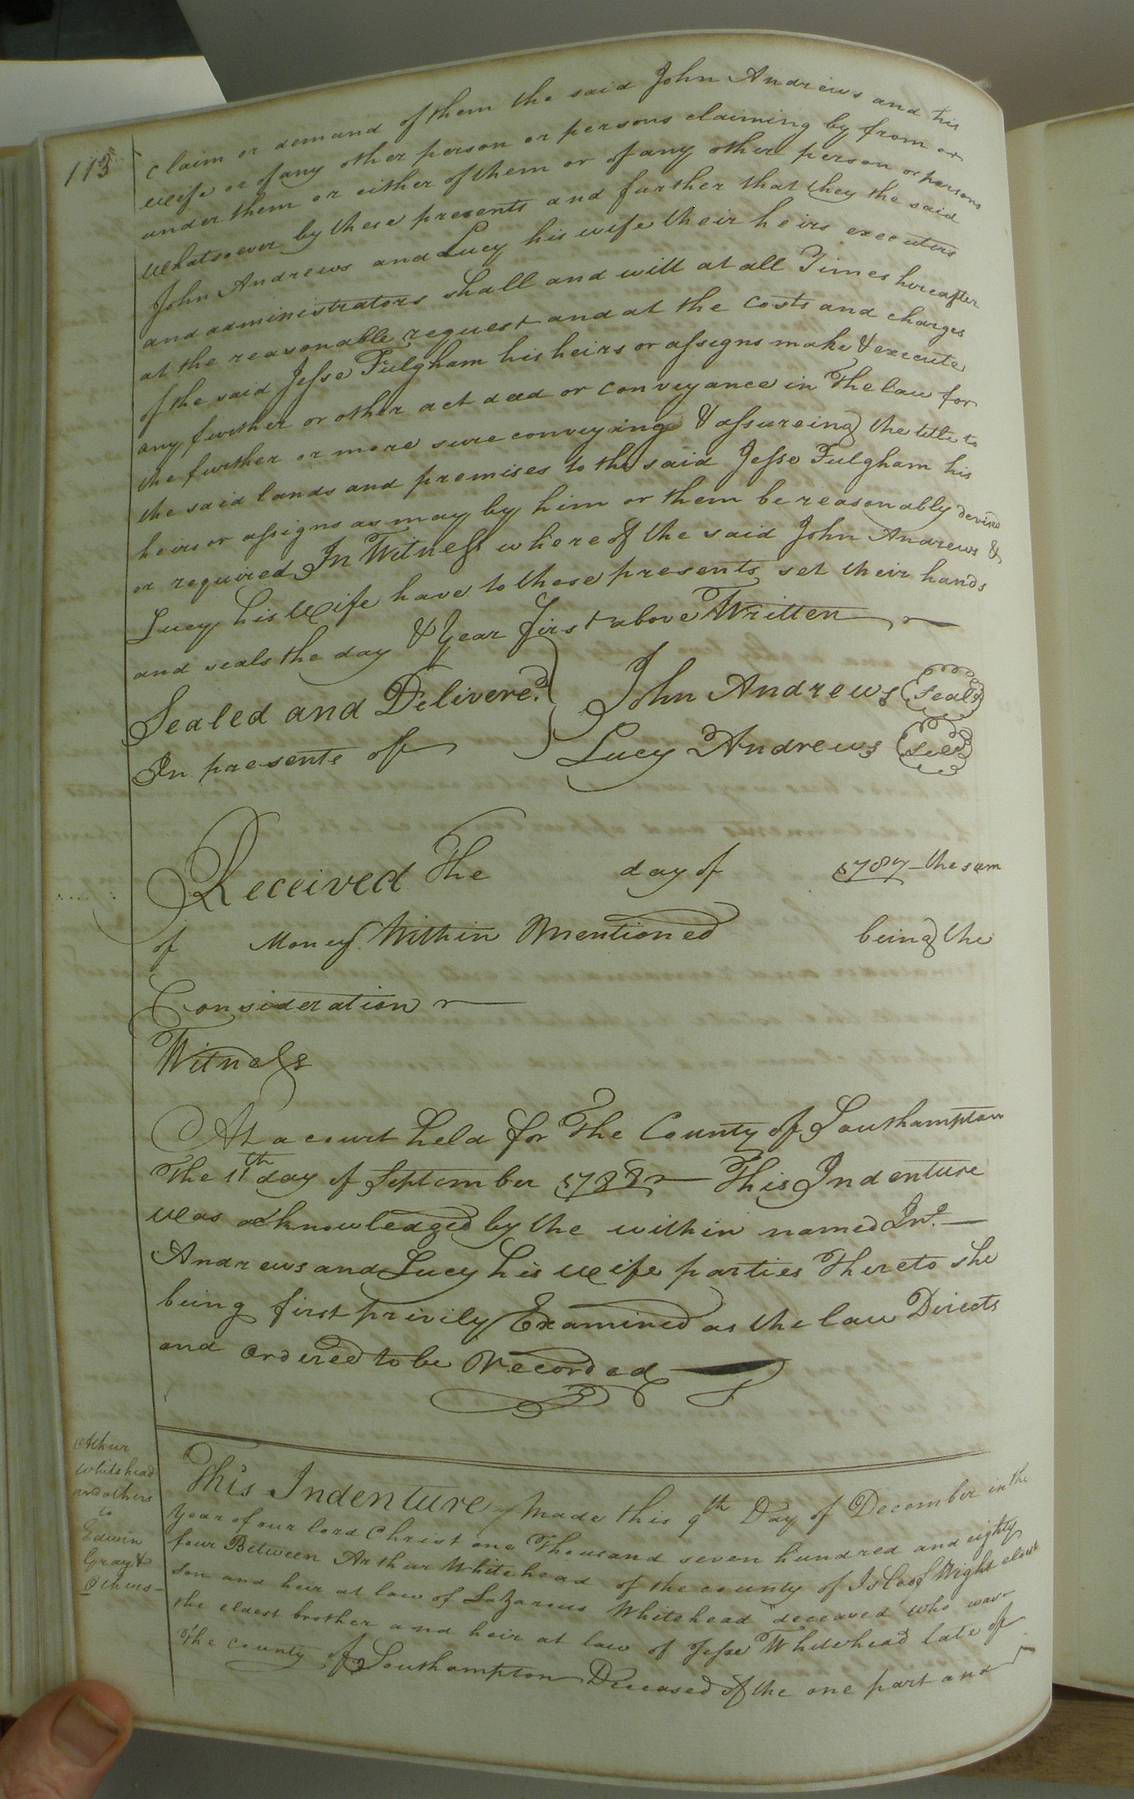 113
claim or demand of them the said John Andrews and his
wife or of any other person or persons claiming by from or
under them or either of them or of any other person or persons
whatsoever by these presents and further that they the said
John Andrews and Lucy his wife their heirs executers
and administrators shall and will at all Times hereafter
at the reasonable request and at the costs and charges
of the said Jesse Fulgham his heirs or assigns make & execute
any further or other act deed or conveyance in The law for
the further or more sure conveying & assureing the title to
the said lands and premises to the said Jesse Fulgham his
heirs or assigns as may by him or them be reasonably devised
or required In Witness whereof the said John Andrews &
Lucy his Wife have to these presents set their hands
and seals the day & Year first above Written
Sealed and Delivered } John Andrews (Seal)
In presents off Lucy Andrews (Seal)
Received The day of 1787 the sum
of Money Within Mentioned being the
Consideration
Witness
At a court held for The County of Southampton
The 11th day of September 1788 This Indenture
was acknowledged by the within named Jno.
Andrews and Lucy his wife parties Thereto she
being first privily Examined as the law Directs
and ordered to be Recorded
Arthur
Whitehead
and others
to
Edwin
Gray &
Others
This Indenture Made this 9th Day of December in the
Year of our lord Christ one Thousand seven hundred and eighty
four Between Arthur Whitehead of the county of Isle of Wight eldest
son and heir at law of Lazarus Whitehead deceased who was
the eldest brother and heir at law of Jesse Whitehead late of
The county of Southampton Deceased of the one part and